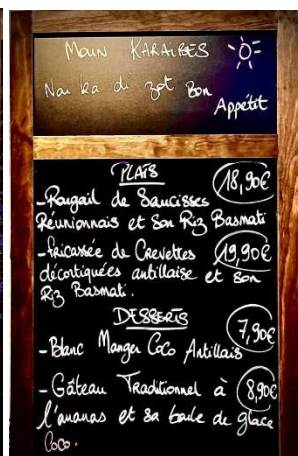 Moun KARAïBES
Nou ka di zot Bon
Appétit
PLATS
18,90€
-Rougail de Saucisses
Réunionnais et son Riz Basmati
-fricassée de Crevettes 19,90€
décortiquées antillaise et son
Riz Basmati.
DESSERTS
7,90€
-Blanc Manger Coco Antillais
-Gâteau Traditionnel à 8,90€
l'ananas et sa boule de glace
Coco.